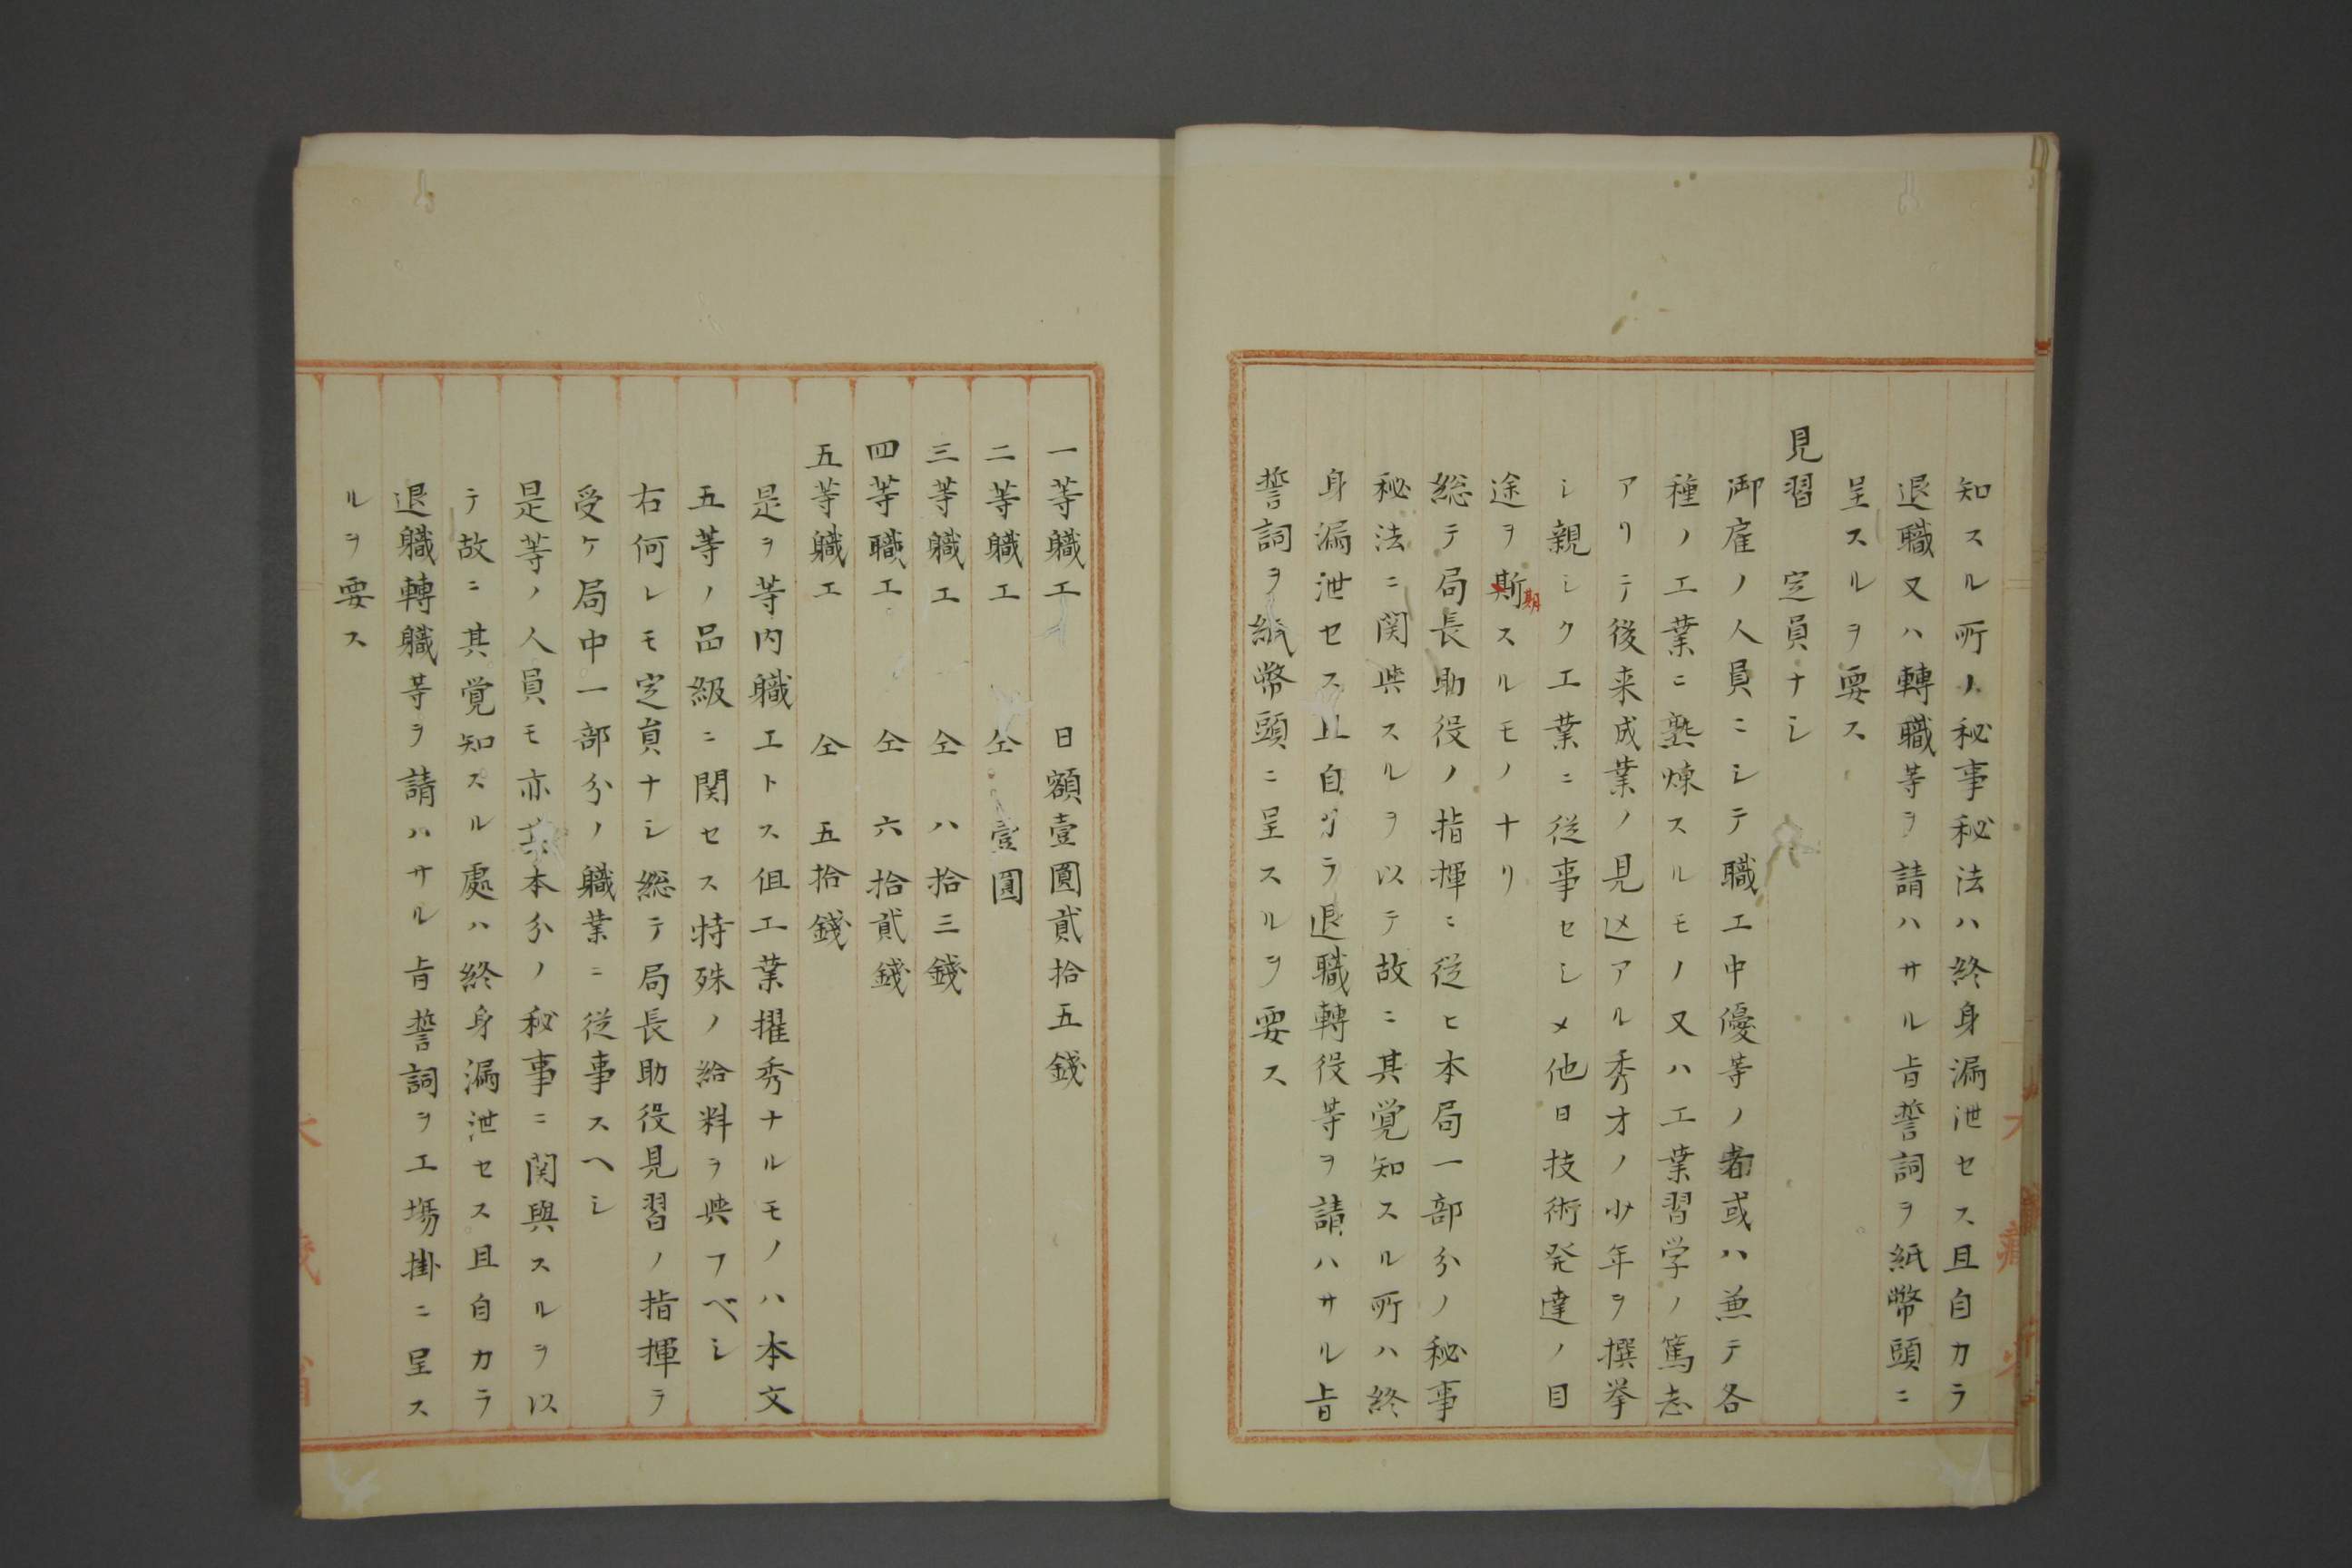 知スル所ノ秘事秘法ハ終身漏泄セス且自カラ
退職又ハ轉職等ヲ請ハサル旨誓詞ヲ紙幣頭ニ
呈スルヲ要ス
見習　定員ナシ
御雇ノ人員ニシテ職工中優等ノ者或ハ兼テ各
種ノ工業ニ熟煉スルモノ又ハ工業習学ノ篤志
アリテ後来成業ノ見込アル秀才ノ少年ヲ撰挙
シ親シク工業ニ従事セシメ他日技術発達ノ目
途ヲ斯スルモノナリ
期
総テ局長助役ノ指揮ニ従ヒ本局一部分ノ秘事
秘法ニ関與スルヲ以テ故ニ其覚知スル所ハ終
身漏泄セス且自カラ退職轉役等ヲ請ハサル旨
誓詞ヲ紙幣頭ニ呈スルヲ要ス
一等職工　日額壹圓貳拾五錢
二等職工　仝　壹圓
三等職工　仝　八拾三錢
四等職工　仝　六拾貳錢
五等職工　仝　五拾錢
是ヲ等内職工トス伹工業擢秀ナルモノハ本文
五等ノ品級ニ関セス特殊ノ給料ヲ與フベシ
右何レモ定員ナシ総テ局長助役見習ノ指揮ヲ
受ケ局中一部分ノ職業ニ従事スヘシ
是等ノ人員モ亦其本分ノ秘事ニ関與スルヲ以
テ故ニ其覚知スル處ハ終身漏泄セス且自カラ
退職轉職等ヲ請ハサル旨誓詞ヲ工塲掛ニ呈ス
ルヲ要ス